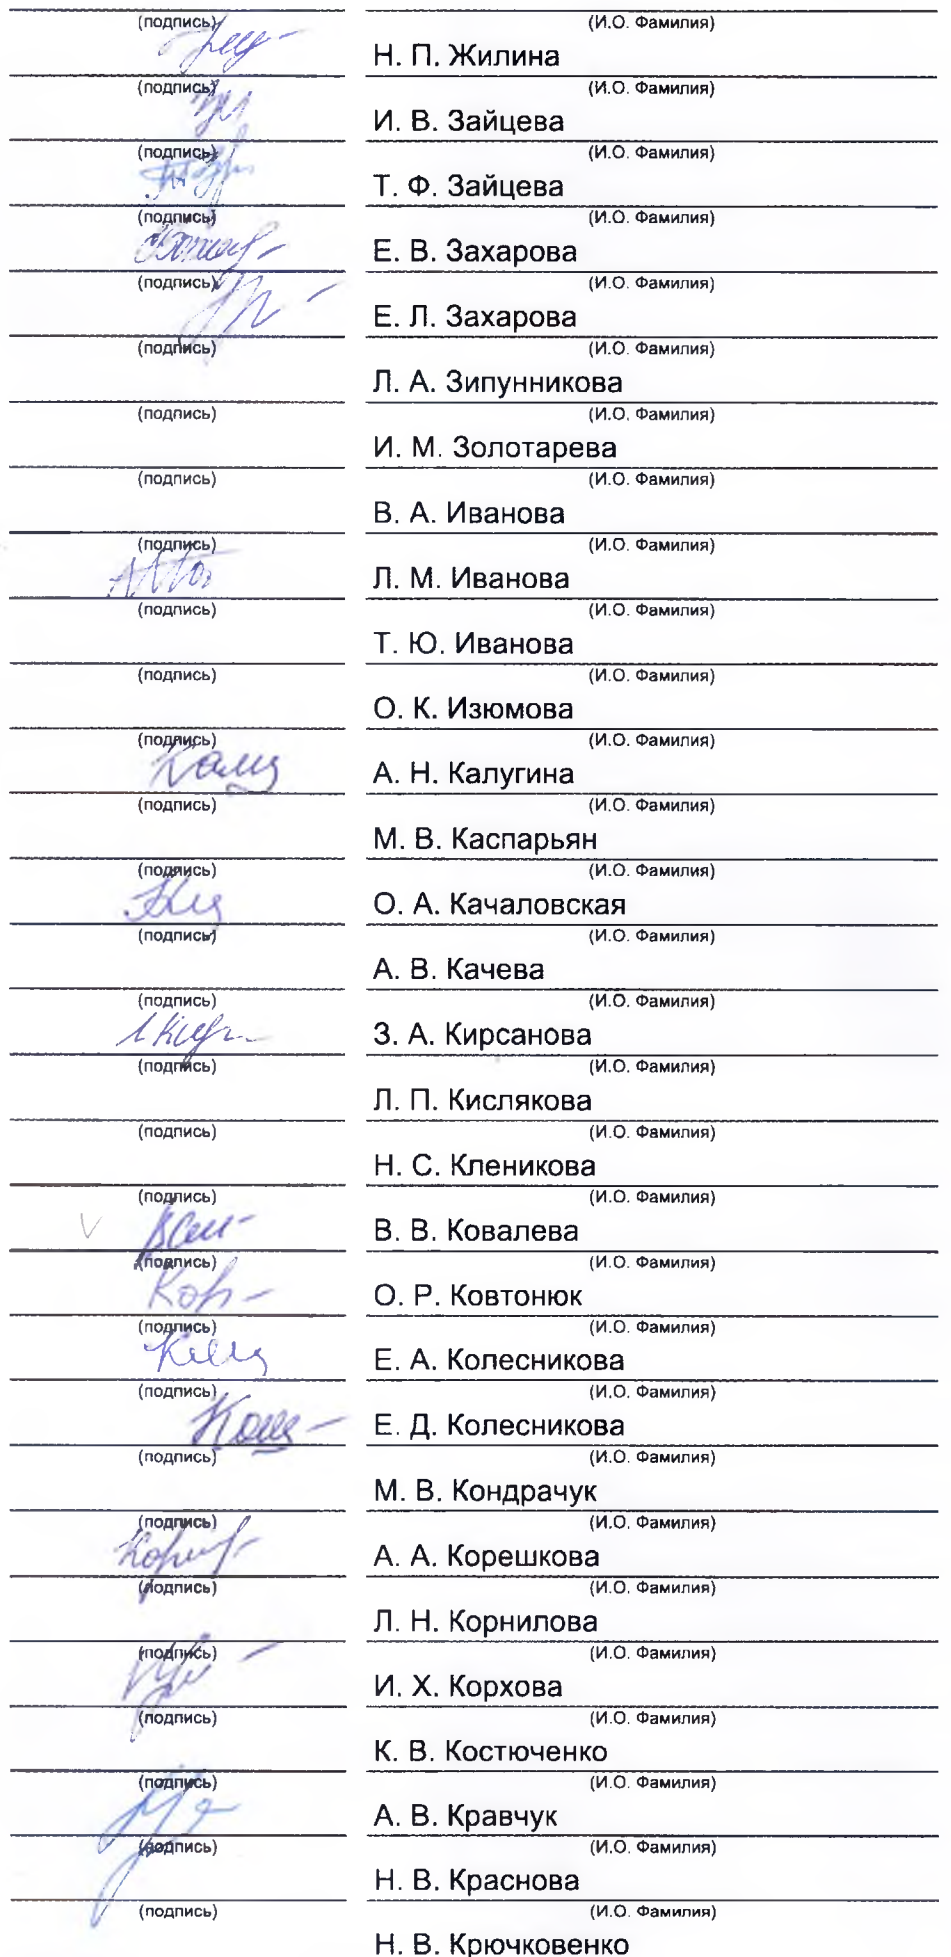 (подпись) (И.О. Фамилия)
Н. П. Жилина
(подпись) (И.О. Фамилия)
И. В. Зайцева
(подпись) (И.О. Фамилия)
Т. Ф. Зайцева
(подпись) (И.О. Фамилия)
Е. В. Захарова
(подпись) (И.О. Фамилия)
Е. Л. Захарова
(подпись) (И.О. Фамилия)
Л. А. Зипунникова
(подпись) (И.О. Фамилия)
И. М. Золотарева
(подпись) (И.О. Фамилия)
В. А. Иванова
(подпись) (И.О. Фамилия)
Л. М. Иванова
(подпись) (И.О. Фамилия)
Т. Ю. Иванова
(подпись) (И.О. Фамилия)
О. К. Изюмова
(подпись) (И.О. Фамилия)
А. Н. Калугина
(подпись) (И.О. Фамилия)
М. В. Каспарьян
(подпись) (И.О. Фамилия)
О. А. Качаловская
(подпись) (И.О. Фамилия)
А. В. Качева
(подпись) (И.О. Фамилия)
З. А. Кирсанова
(подпись) (И.О. Фамилия)
Л. П. Кислякова
(подпись) (И.О. Фамилия)
Н. С. Кленикова
(подпись) (И.О. Фамилия)
В. В. Ковалева
(подпись) (И.О. Фамилия)
О. Р. Ковтонюк
(подпись) (И.О. Фамилия)
Е. А. Колесникова
(подпись) (И.О. Фамилия)
Е. Д. Колесникова
(подпись) (И.О. Фамилия)
М. В. Кондрачук
(подпись) (И.О. Фамилия)
А. А. Корешкова
(подпись) (И.О. Фамилия)
Л. Н. Корнилова
(подпись) (И.О. Фамилия)
И. Х. Корхова
(подпись) (И.О. Фамилия)
К. В. Костюченко
(подпись) (И.О. Фамилия)
А. В. Кравчук
(подпись) (И.О. Фамилия)
Н. В. Краснова
(подпись) (И.О. Фамилия)
Н. В. Крючковенко